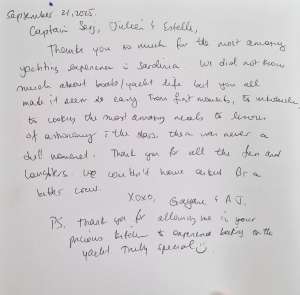 September 21, 2025.
Captain Serj, Julien & Estelle,
Thank you so much for the most amazing
yachting experience in Sardinia. We did not know
much about boats/yacht life but you all
made it seem so easy. From first moments, to
to cooking the most amazing meals to lessons
of astronomy & the stars, there was never a
dull moment. Thank you for all the fun and
laughters. We couldn't have asked for a
better crew.
Xoxo, & A.J.
PS. Thank you for allowing me in your
precious kitchen to experience cooking on the
yacht. Truly special